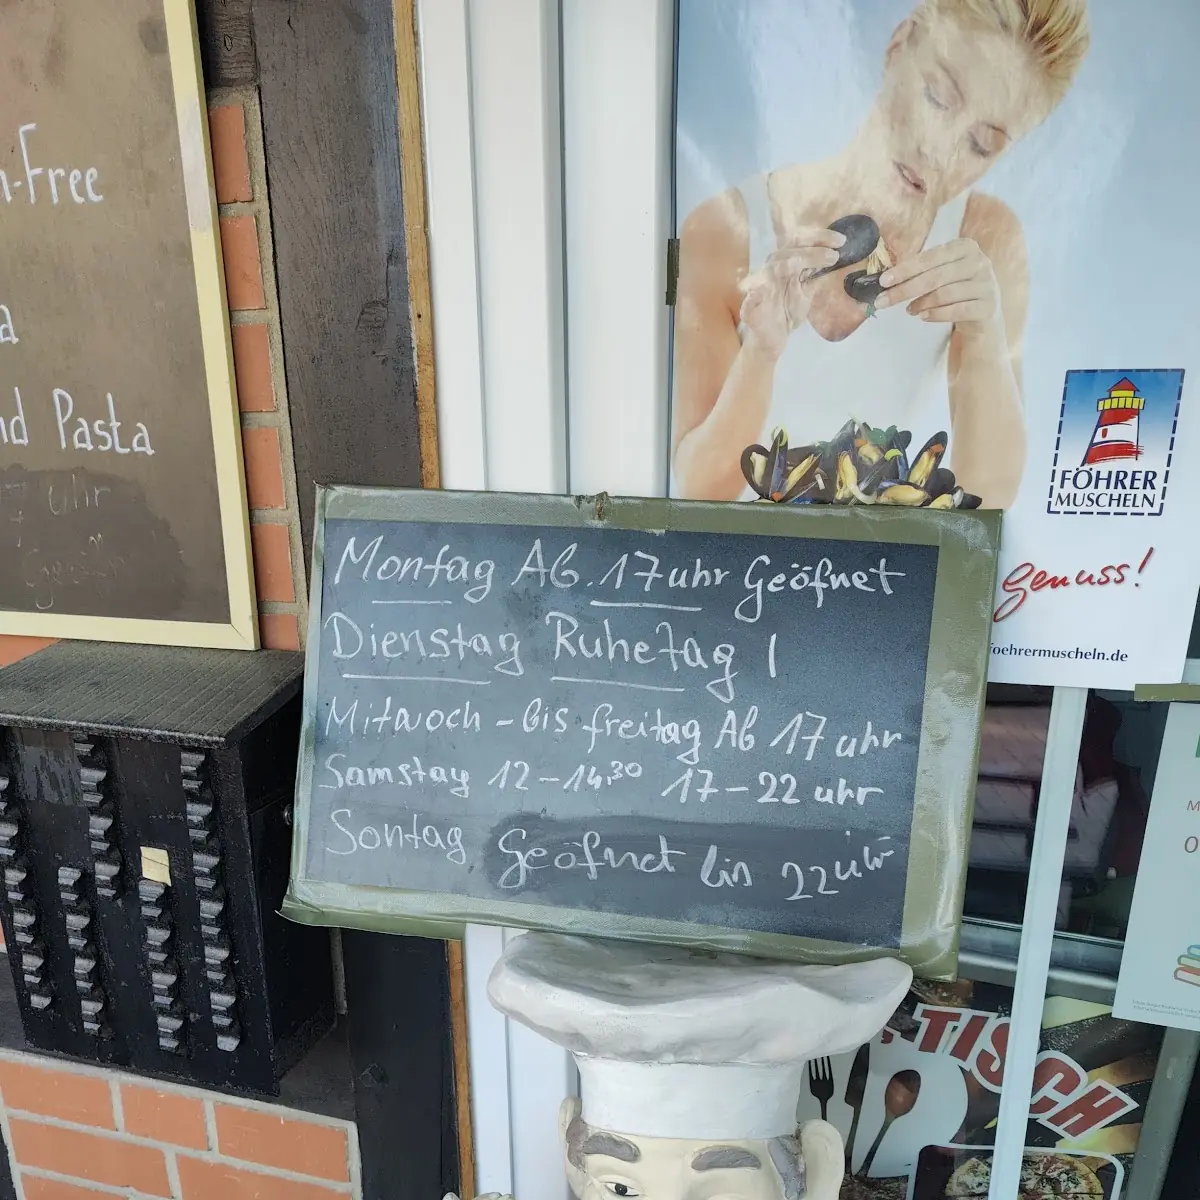 n-Free
a
nd Pasta
7 Uhr
FÖHRER
MUSCHELN
genuss!
foehrermuscheln.de
Montag Ab. 17 uhr Geöfnet
Dienstag Ruhetag !
Mitwoch - bis freitag Ab 17 uhr
Samstag 12 - 14,30 17 - 22 uhr
Sontag Geöfnet bis 22 uhr
TISCH